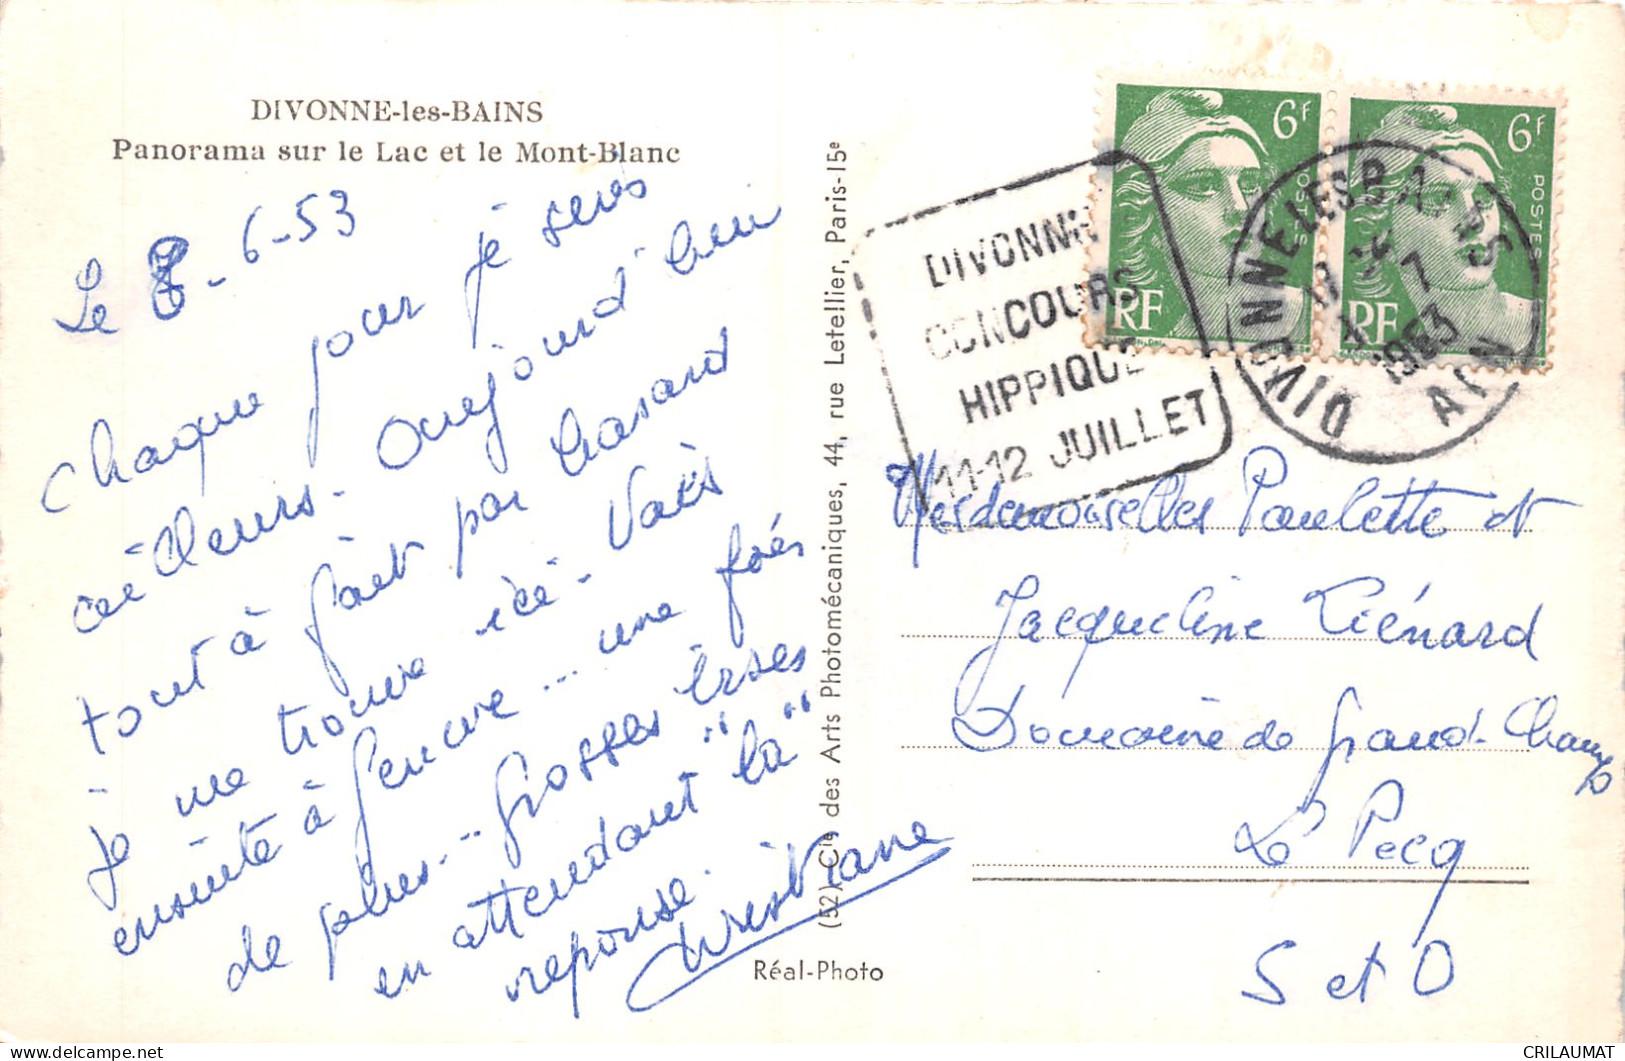 DIVONNE-les-BAINS
Panorama sur le Lac et le Mont-Blanc
Le 8-6-53
Chaque jour je suis
ailleurs - Aujourd'hui
tout à fait par hasard
je me trouve ici - Vais
ensuite à Genève... une fois
de plus... Grosses bises
en attendant "la"
réponse.
Christiane
(52) Cie des Arts Photomécaniques, 44, rue Letellier, Paris-15e
Réal-Photo
DIVONNE
CONCOURS
HIPPIQUE
11-12 JUILLET
6F
POSTES
RF
6F
POSTES
RF
DIVONNE LES BAINS
7
1953
AIN
Mesdemoiselles Paulette et
Jacqueline Liénard
Domaine de Grand-Champ
Le Pecq
S et O
CRILAUMAT